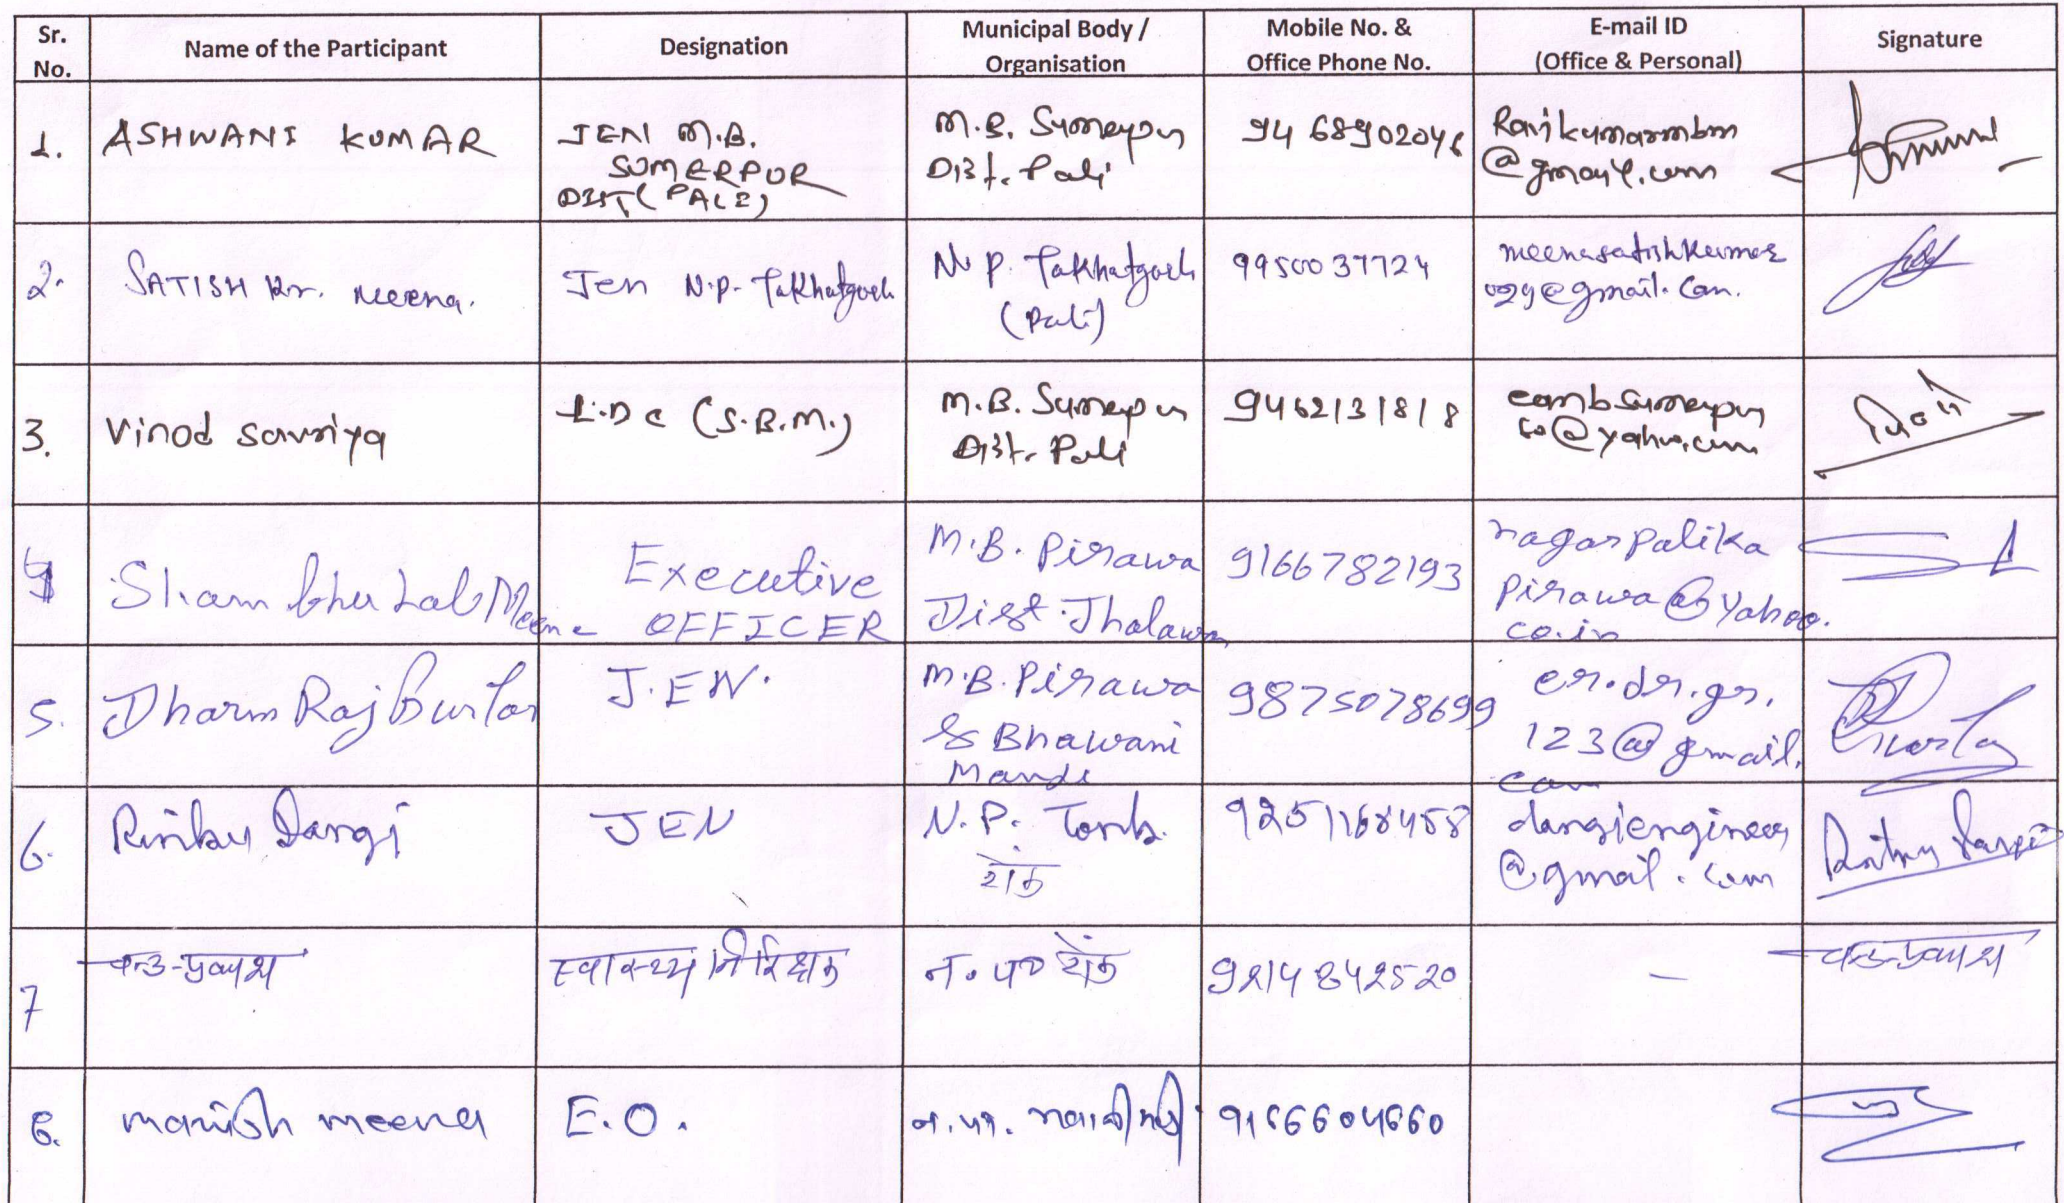 Sr. No. Name of the Participant Designation Municipal Body / Organisation Mobile No. & Office Phone No. E-mail ID (Office & Personal) Signature
1. ASHWANI KUMAR
JEN M.B.
SUMERPUR
DIST (PALI)
M.B. Sumerpur
Dist. Pali
9468902046
Ravikumarmbm
@gmail.com
2. SATISH Kr. Meena.
Jen N.P. Takhatgarh
N.P. Takhatgarh
(Pali)
9950037724
meenasatishkumar
029@gmail.com.
3. Vinod
L.D.C (S.B.M.)
M.B. Sumerpur
Dist. Pali
9462131818
eombsumerpur
@yahoo.com
4 Shambhu Lal Meena
Executive
OFFICER
M.B. Pirawa
Dist. Jhalawar
9166782193
nagarpalika
pirawa@yahoo.
co.in
5. Dharm Raj
J.EN.
M.B. Pirawa
& Bhawani
Mandi
9875078699
er.dr.gr.
123@gmail.
com
6. Rinku Dangi
JEN
N.P. Tonk.
टोंक
dangiengineer
@gmail.com
Rinku Dangi
7
स्वास्थ्य निरिक्षक
न० प० टोंक
9214842520
-
8. Manish Meena
E.O.
न.पा.
9166604660